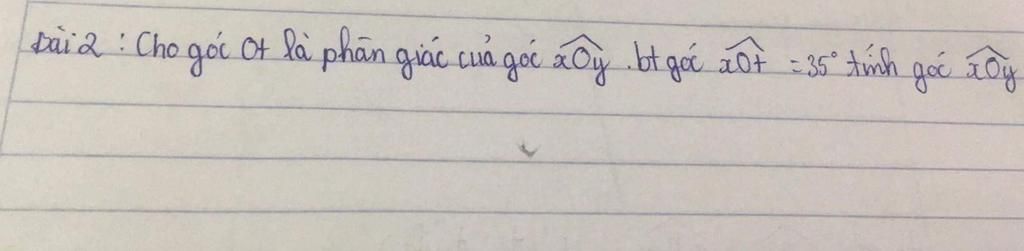 Bài 2 : Cho góc Ot là phân giác của góc xOy . bt góc xOt = 35° tính góc xOy